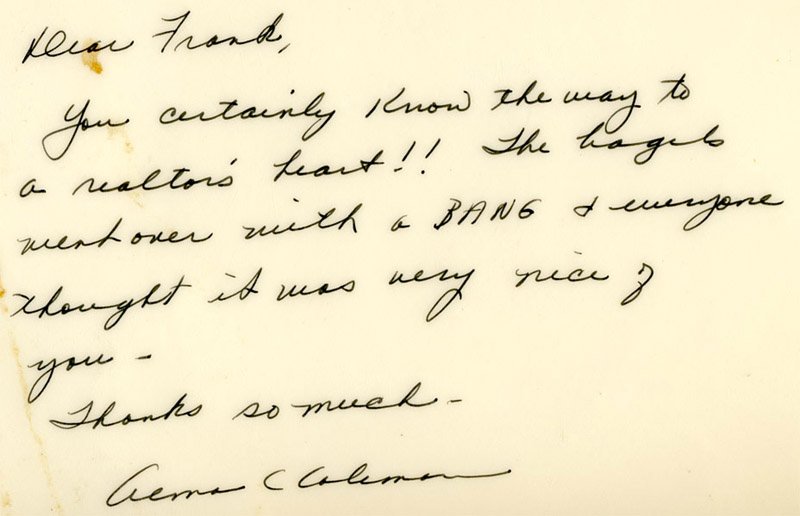 Dear Frank,
You certainly know the way to
a realtor's heart!! The bagels
went over with a BANG & everyone
thought it was very nice of
you -
Thanks so much -
Coleman